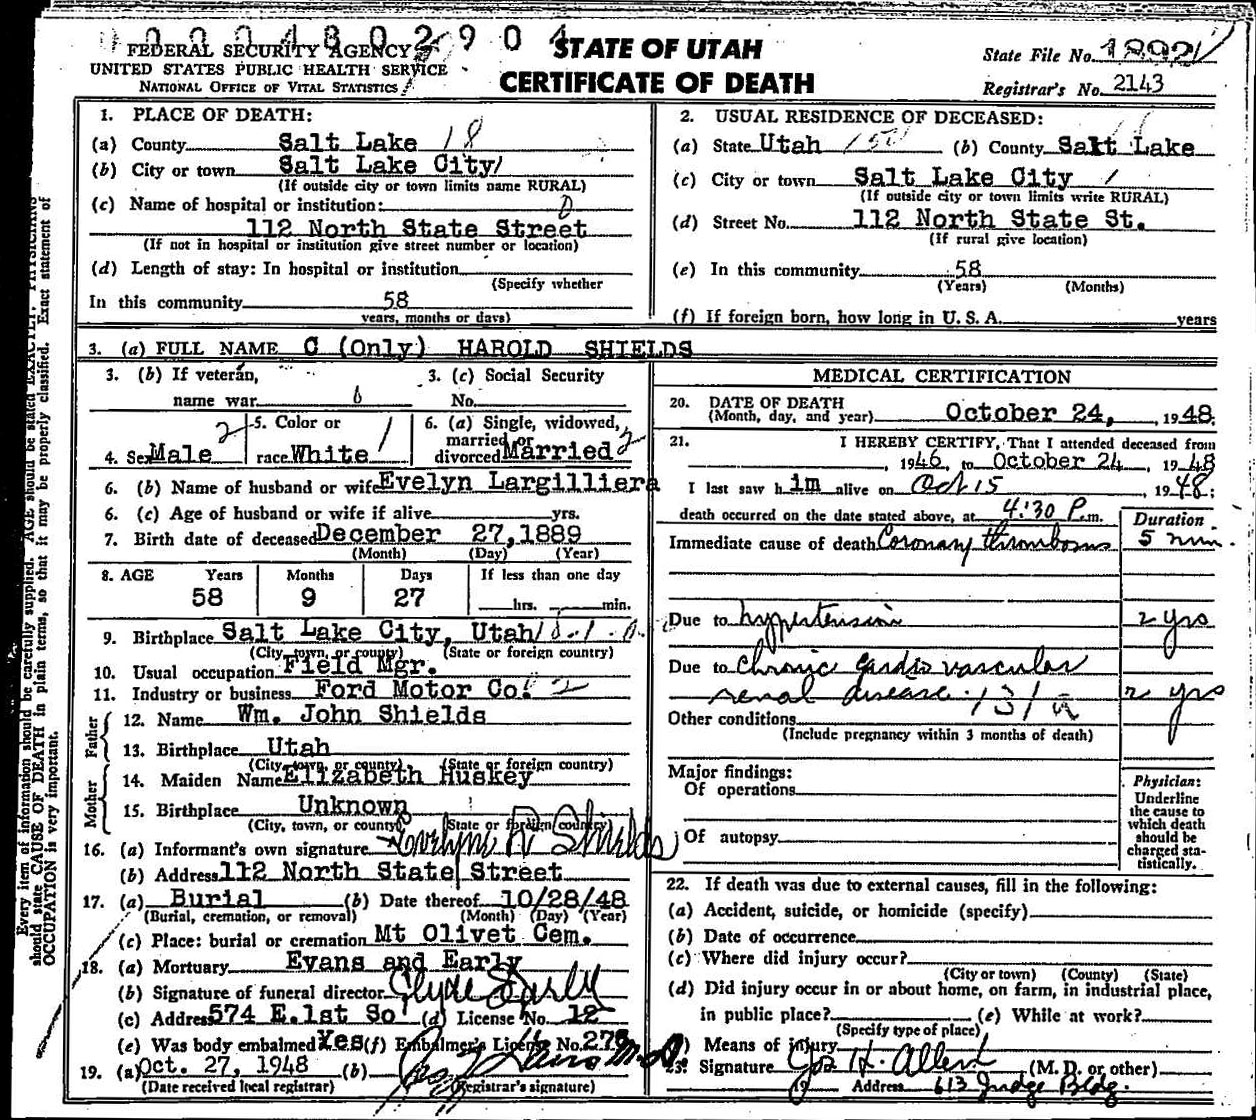 0 0 0 4 8 0 2 9 0 4
FEDERAL SECURITY AGENCY
UNITED STATES PUBLIC HEALTH SERVICE
NATIONAL OFFICE OF VITAL STATISTICS
STATE OF UTAH
CERTIFICATE OF DEATH
State File No.
Registrar's No. 2143
1. PLACE OF DEATH:
(a) County Salt Lake 18
(b) City or town Salt Lake City
(If outside city or town limits name RURAL)
(c) Name of hospital or institution: 0
112 North State Street
(If not in hospital or institution give street number or location)
(d) Length of stay: In hospital or institution
(Specify whether
In this community 58
years, months or days)
2. USUAL RESIDENCE OF DECEASED:
(a) State Utah (b) County Salt Lake
(c) City or town Salt Lake City
(If outside city or town limits write RURAL)
(d) Street No. 112 North State St.
(If rural give location)
(e) In this community 58
(Years) (Months)
(f) If foreign born, how long in U. S. A. years
3. (a) FULL NAME C (Only) HAROLD SHIELDS
3. (b) If veteran,
name war
3. (c) Social Security
No.
4. Sex Male 2
5. Color or
race White 1
6. (a) Single, widowed,
married or
divorced Married 2
6. (b) Name of husband or wife Evelyn Largilliera
6. (c) Age of husband or wife if alive yrs.
7. Birth date of deceased December 27, 1889
(Month) (Day) (Year)
8. AGE Years Months Days If less than one day
58 9 27 hrs. min.
9. Birthplace Salt Lake City, Utah
(City, town, or county) (State or foreign country)
10. Usual occupation Field Mgr.
11. Industry or business Ford Motor Co.
Father
12. Name Wm. John Shields
13. Birthplace Utah
(City, town, or county) (State or foreign country)
Mother
14. Maiden Name Elizabeth Huskey
15. Birthplace Unknown
(City, town, or county) State or foreign country)
16. (a) Informant's own signature Evelyn R Shields
(b) Address 112 North State Street
17. (a) Burial (b) Date thereof 10/28/48
(Burial, cremation, or removal) (Month) (Day) (Year)
(c) Place: burial or cremation Mt Olivet Cem.
18. (a) Mortuary Evans and Early
(b) Signature of funeral director Clyde Early
(c) Address 574 E. 1st So (d) License No. 12
(e) Was body embalmed Yes (f) Embalmer's License No.
19. (a) Oct. 27, 1948 (b) M.D.
(Date received local registrar) (Registrar's signature)
MEDICAL CERTIFICATION
20. DATE OF DEATH
(Month, day, and year) October 24, 1948
21. I HEREBY CERTIFY, That I attended deceased from
, 1946, to October 24, 1948
I last saw him alive on Oct 15, 1948;
death occurred on the date stated above, at 4:30 P.m.
Duration
Immediate cause of death Coronary thrombosis 5 min.
Due to hypertension 2 yrs
Due to Chronic cardio vascular
renal disease. 131a 2 yrs
Other conditions
(Include pregnancy within 3 months of death)
Major findings:
Of operations
Of autopsy
Physician:
Underline
the cause to
which death
should be
charged sta-
tistically.
22. If death was due to external causes, fill in the following:
(a) Accident, suicide, or homicide (specify)
(b) Date of occurrence
(c) Where did injury occur?
(City or town) (County) (State)
(d) Did injury occur in or about home, on farm, in industrial place,
in public place? (e) While at work?
(Specify type of place)
Means of injury
23. Signature Jos H. Allen (M. D. or other)
Address 613 Judge Bldg.
Every item of information should be carefully supplied. AGE should be stated EXACTLY. PHYSICIANS
should state CAUSE OF DEATH in plain terms, so that it may be properly classified. Exact statement of
OCCUPATION is very important.